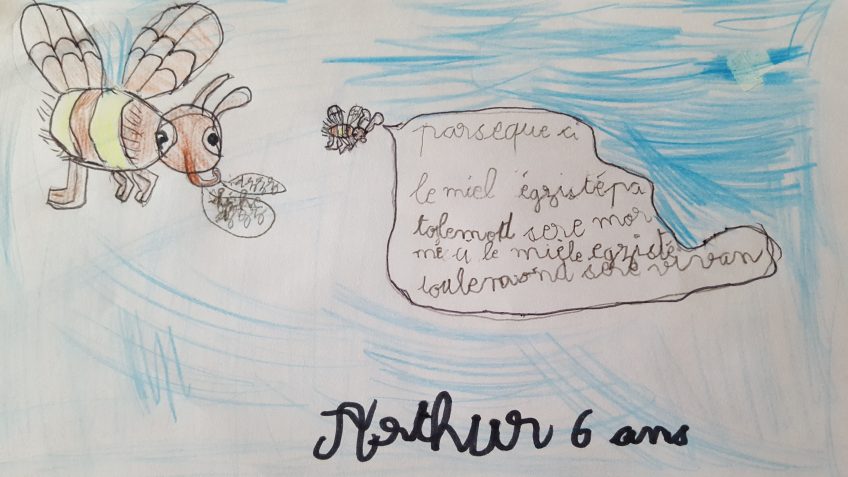 parseque ci
le miel égzistépa
tolemott sere mor
mé ci le miele egzisté
toulemond seré vivan
Arthur 6 ans